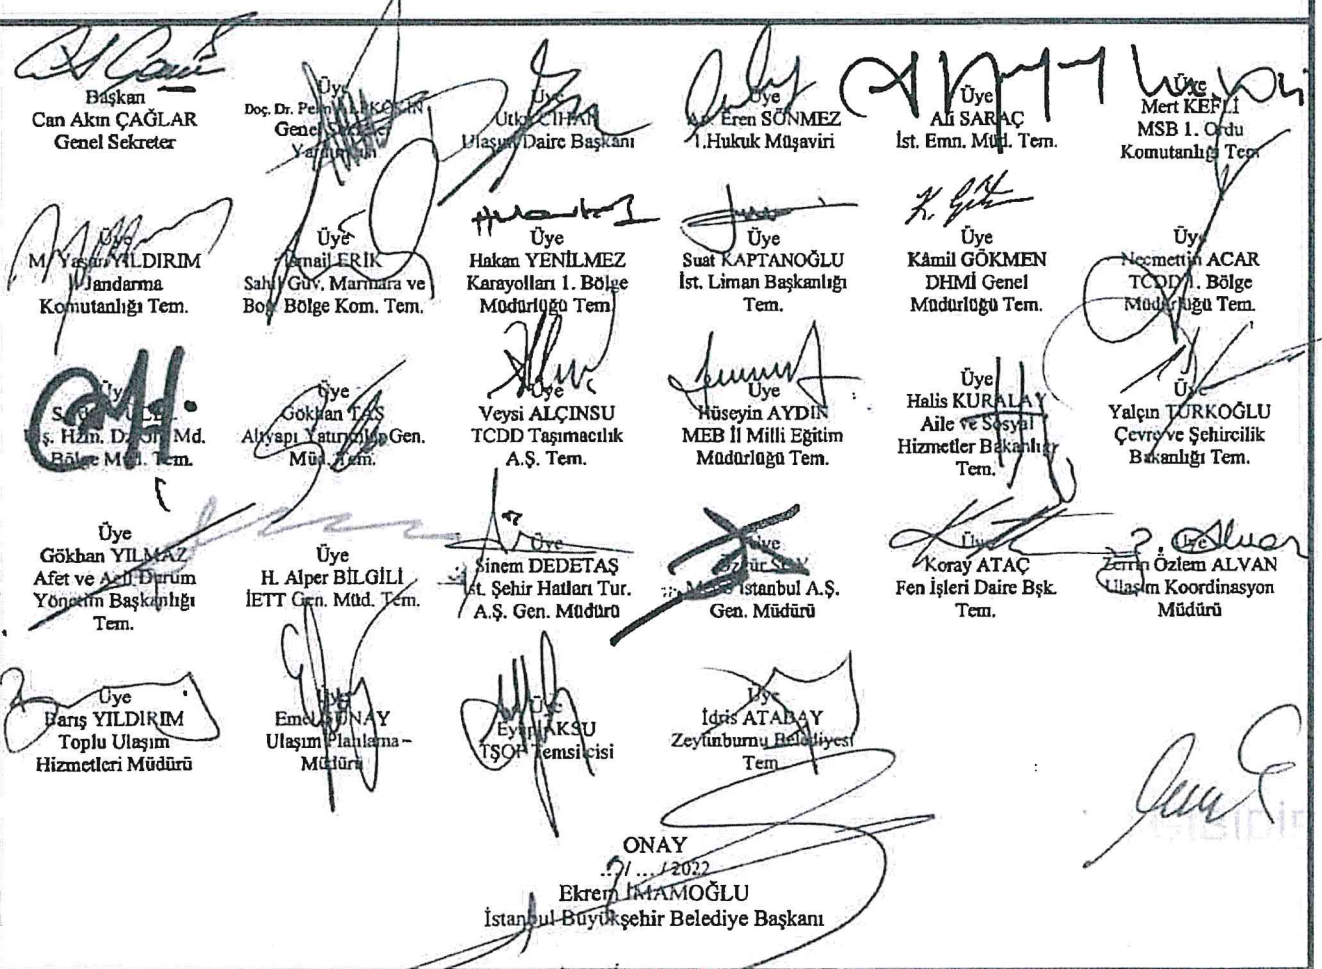 Başkan
Can Akın ÇAĞLAR
Genel Sekreter
Üye
Doç. Dr.
Genel
Üye
Utku CİHAN
Ulaşım Daire Başkanı
Üye
Eren SÖNMEZ
1.Hukuk Müşaviri
Üye
Ali SARAÇ
İst. Emn. Müd. Tem.
Üye
Mert KEFLİ
MSB 1. Ordu
Komutanlığı Tem
Üye
M. Yaşar YILDIRIM
Jandarma
Komutanlığı Tem.
Üye
İsmail ERİK
Sahil Güv. Marmara ve
Boğ. Bölge Kom. Tem.
Üye
Hakan YENİLMEZ
Karayolları 1. Bölge
Müdürlüğü Tem.
Üye
Suat KAPTANOĞLU
İst. Liman Başkanlığı
Tem.
Üye
Kâmil GÖKMEN
DHMİ Genel
Müdürlüğü Tem.
Üye
Necmettin ACAR
TCDD 1. Bölge
Müdürlüğü Tem.
Md.
Bölge Müd. Tem.
Üye
Gökhan TAŞ
Altyapı Yatırımları Gen.
Müd. Tem.
Üye
Veysi ALÇINSU
TCDD Taşımacılık
A.Ş. Tem.
Üye
Hüseyin AYDIN
MEB İl Milli Eğitim
Müdürlüğü Tem.
Üye
Halis KURALAY
Aile ve Sosyal
Hizmetler Bakanlığı
Tem.
Üye
Yalçın TÜRKOĞLU
Çevre ve Şehircilik
Bakanlığı Tem.
Üye
Gökhan YILMAZ
Afet ve Acil Durum
Yönetim Başkanlığı
Tem.
Üye
H. Alper BİLGİLİ
İETT Gen. Müd. Tem.
Üye
Sinem DEDETAŞ
İst. Şehir Hatları Tur.
A.Ş. Gen. Müdürü
Üye
İstanbul A.Ş.
Gen. Müdürü
Üye
Koray ATAÇ
Fen İşleri Daire Bşk.
Tem.
Üye
Zerrin Özlem ALVAN
Ulaşım Koordinasyon
Müdürü
Üye
Barış YILDIRIM
Toplu Ulaşım
Hizmetleri Müdürü
Üye
Emel GÜNAY
Ulaşım Planlama –
Müdürü
Üye
Eyüp AKSU
TŞOF Temsilcisi
Üye
İdris ATABAY
Zeytinburnu Belediyesi
Tem
ONAY
/ ... / 2022
Ekrem İMAMOĞLU
İstanbul Büyükşehir Belediye Başkanı